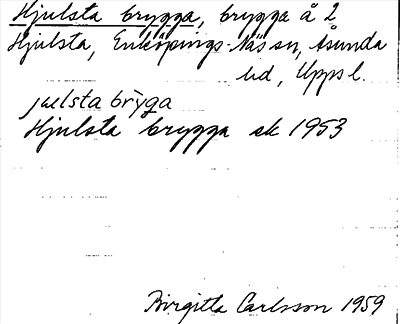 Hjulsta brygga, brygga å 2
Hjulsta, Enköpings-Näs sn, Åsunda
hd, Uppsl.
julsta brỳga
Hjulsta brygga ek 1953
Birgitta Carlsson 1959